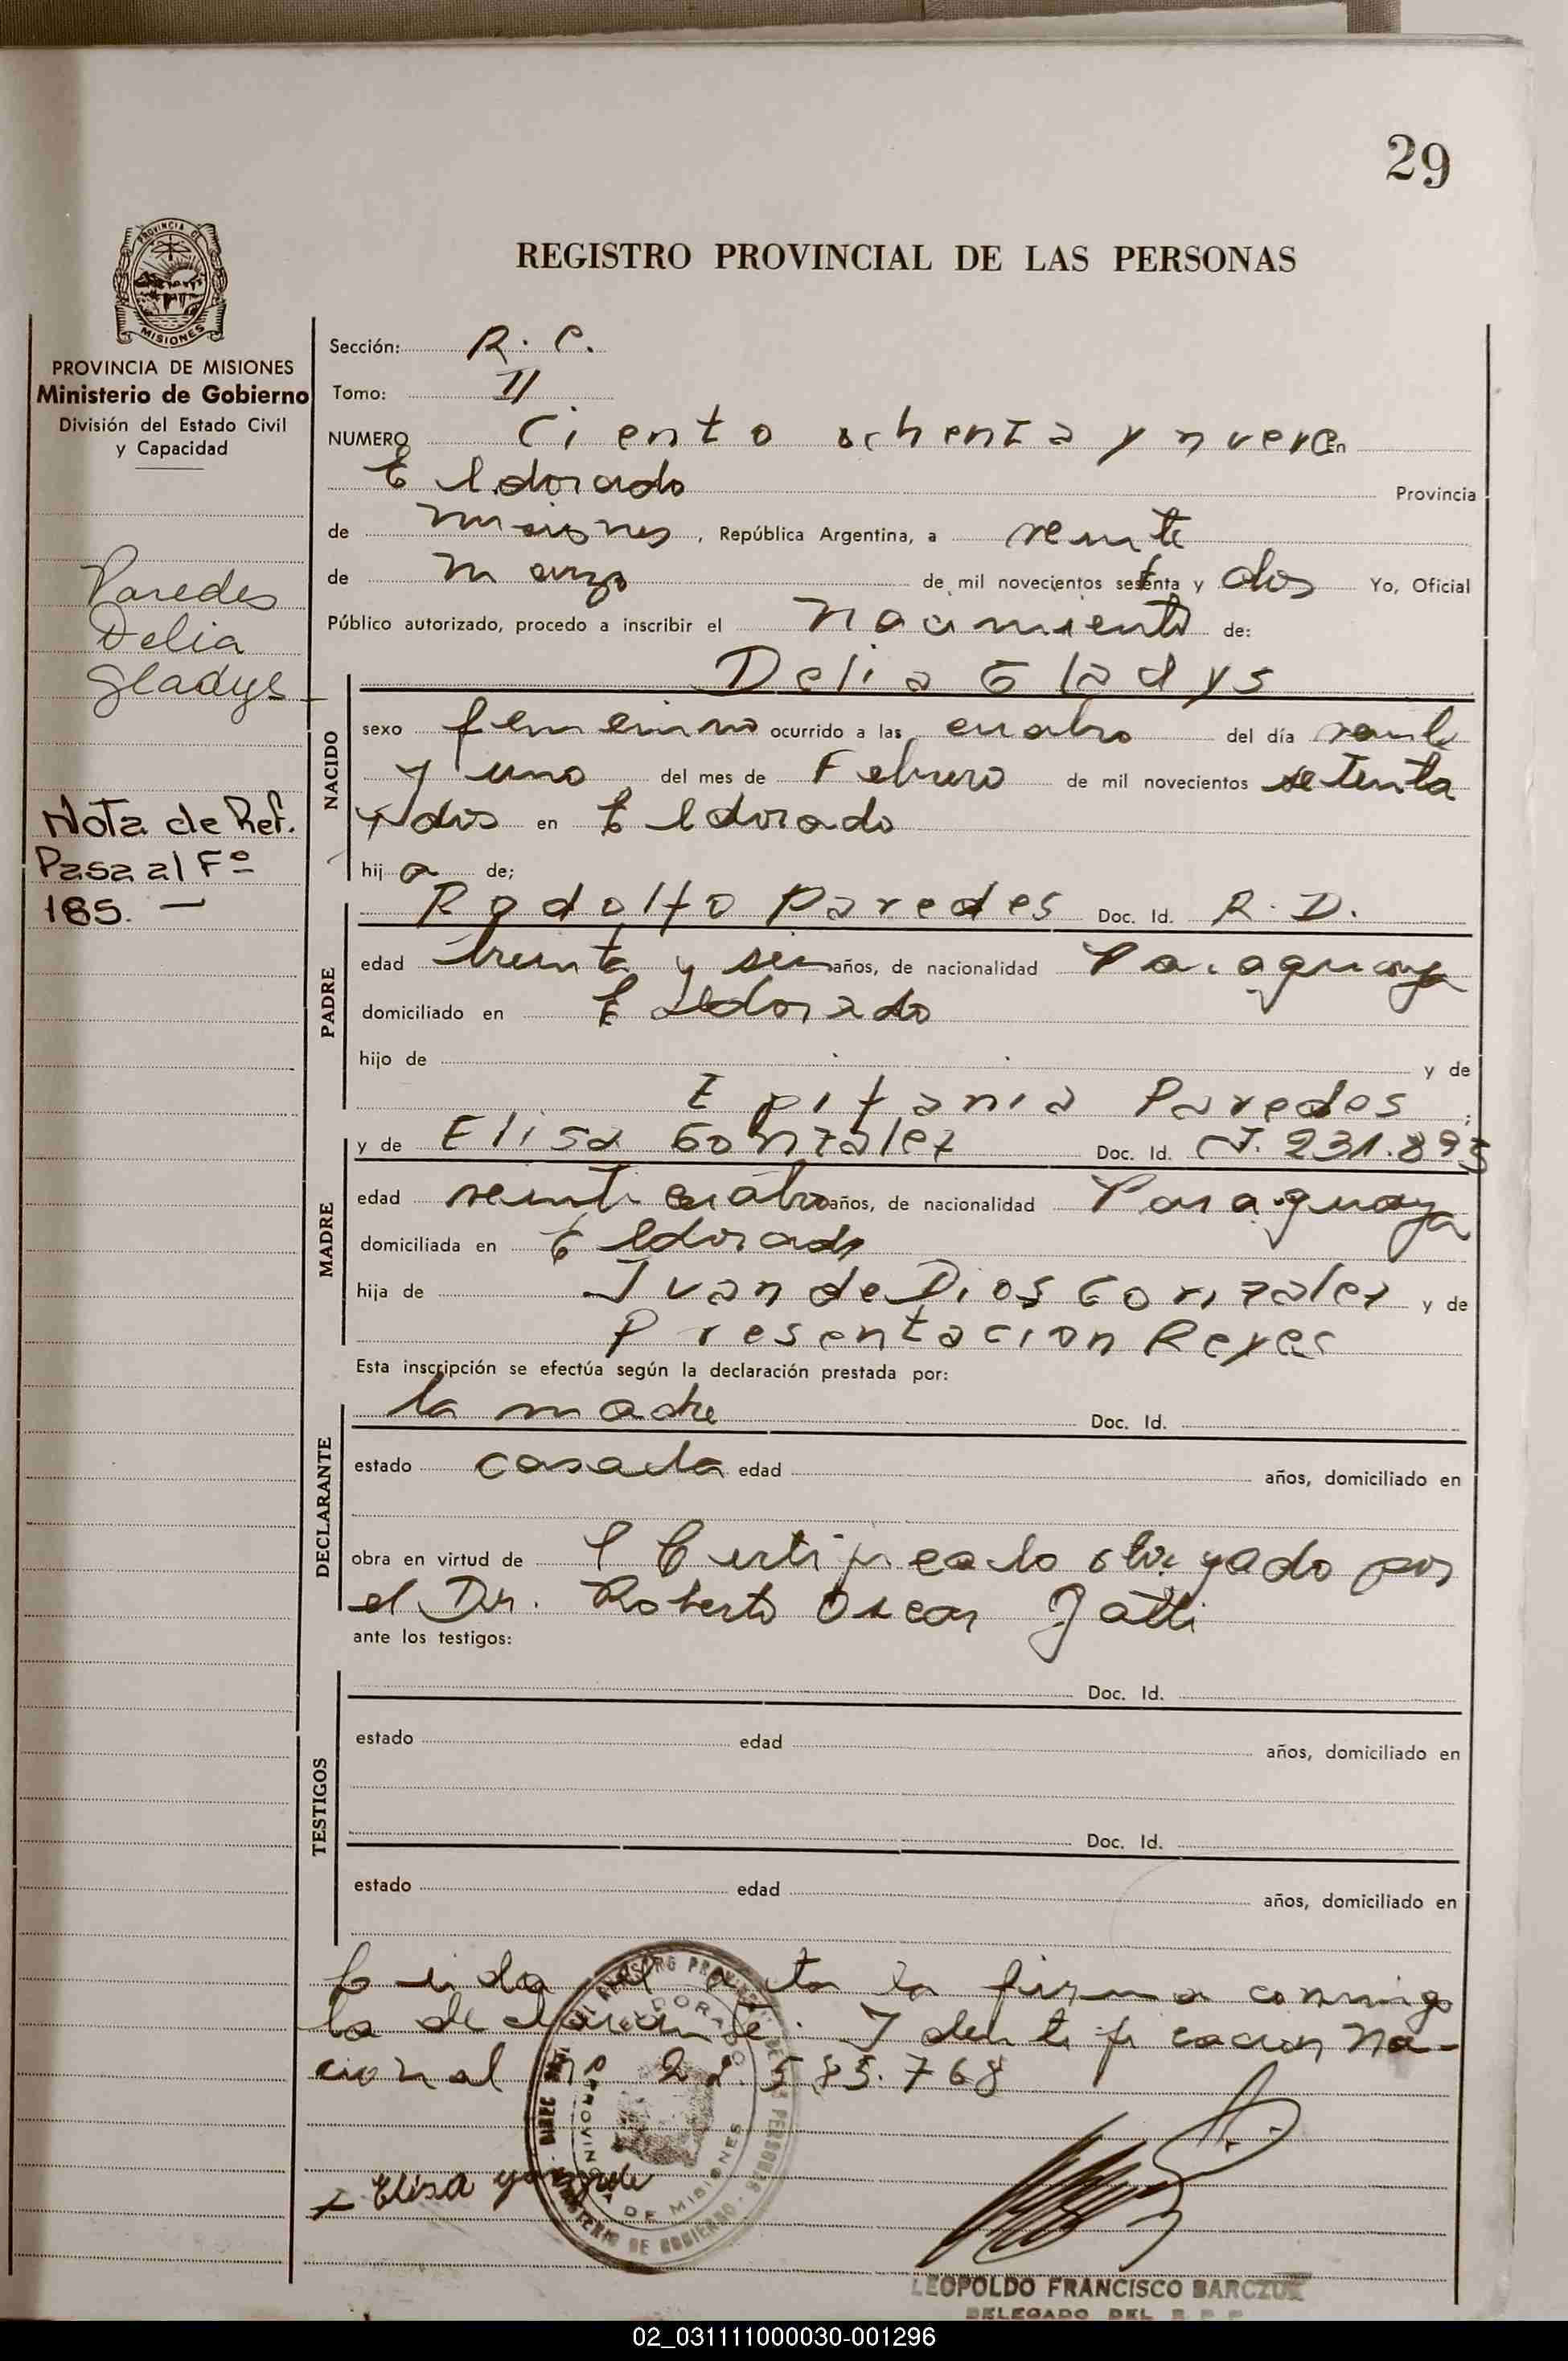 29
REGISTRO PROVINCIAL DE LAS PERSONAS
PROVINCIA DE MISIONES
Ministerio de Gobierno
División del Estado Civil
y Capacidad
Paredes
Delia
Gladys
Nota de Ref.
Pasa al Fº
185. —
Sección: R. C.
Tomo: II
NUMERO Ciento ochenta y nueve en
Eldorado Provincia
de Misiones, República Argentina, a veinte
de marzo de mil novecientos setenta y dos Yo, Oficial
Público autorizado, procedo a inscribir el Nacimiento de:
Delia Gladys
NACIDO
sexo femenino ocurrido a las cuatro del día veinte
y uno del mes de Febrero de mil novecientos setenta
y dos en Eldorado
hija de;
PADRE
Rodolfo Paredes Doc. Id. R. D.
edad treinta y seis años, de nacionalidad Paraguaya
domiciliado en Eldorado
hijo de y de
Epifania Paredes ;
MADRE
y de Elisa Gonzalez Doc. Id. C.I. 231.893
edad veinticuatro años, de nacionalidad Paraguaya
domiciliada en Eldorado
hija de Juan de Dios Gonzalez y de
Presentacion Reyes
Esta inscripción se efectúa según la declaración prestada por:
DECLARANTE
la madre Doc. Id.
estado casada edad años, domiciliado en
obra en virtud de l Certificado otorgado por
el Dr. Roberto Oscar Gatti
ante los testigos:
TESTIGOS
Doc. Id.
estado edad años, domiciliado en
Doc. Id.
estado edad años, domiciliado en
Leida el acta la firma conmigo
la declarante. Identificacion Na-
cional nº 22.585.768
Elisa
LEOPOLDO FRANCISCO BARCZUK
DELEGADO DEL R. P. P.
02_031111000030-001296